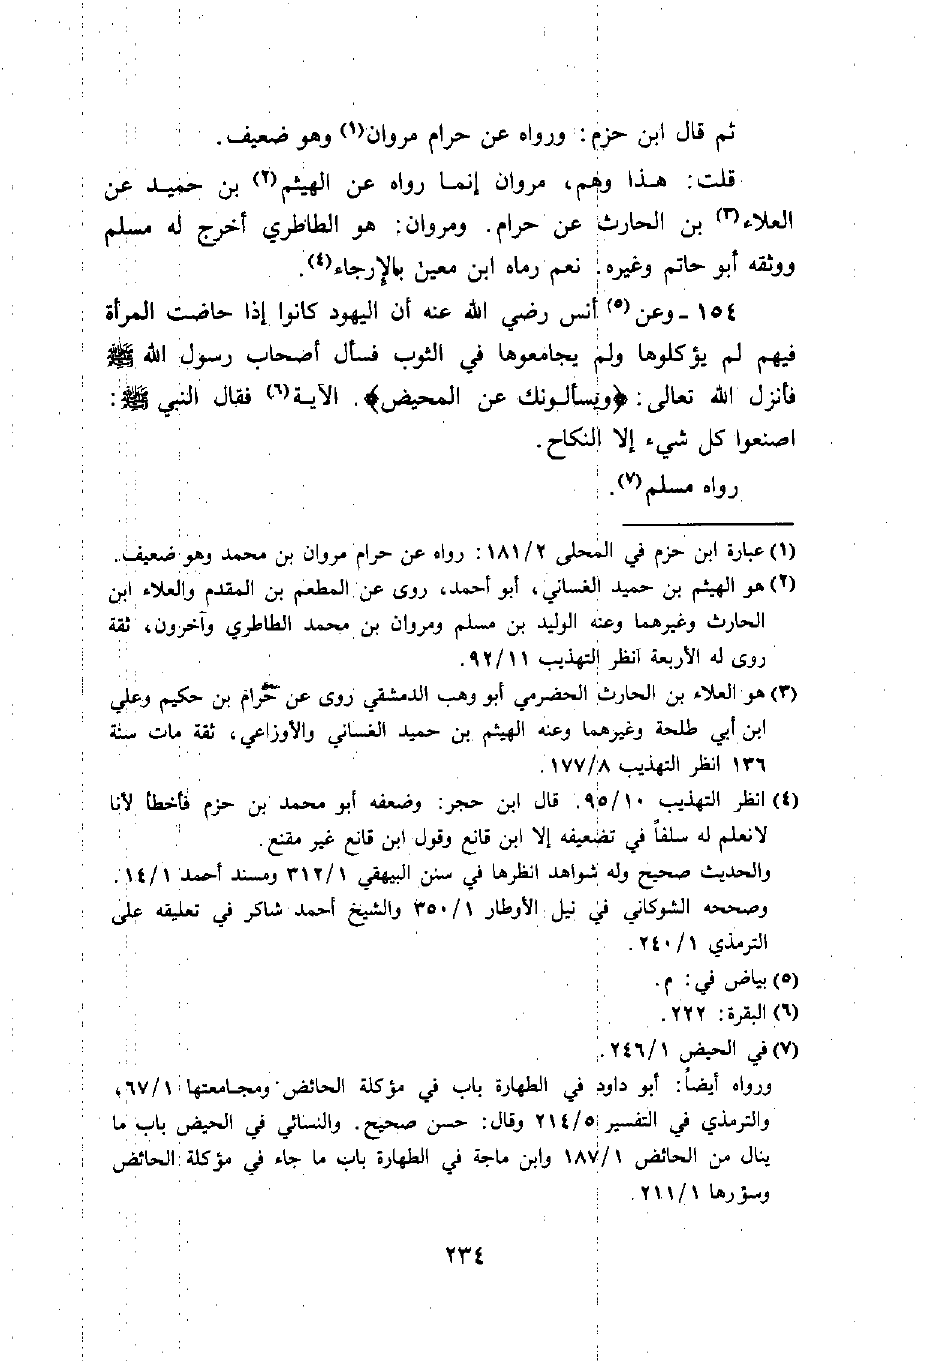 ثم قال ابن حزم: ورواه عن حرام مروان(١) وهو ضعيف.
قلت: هذا وهم، مروان إنما رواه عن الهيثم(٢) بن حميد عن
العلاء(٣) بن الحارث عن حرام. ومروان: هو الطاطري أخرج له مسلم
ووثقه أبو حاتم وغيره. نعم رماه ابن معين بالإرجاء(٤).
١٥٤ - وعن(٥) أنس رضي الله عنه أن اليهود كانوا إذا حاضت المرأة
فيهم لم يؤكلوها ولم يجامعوها في الثوب فسأل أصحاب رسول الله ﷺ
فأنزل الله تعالى: ﴿ويسألونك عن المحيض﴾. الآية(٦) فقال النبي ﷺ:
اصنعوا كل شيء إلا النكاح.
رواه مسلم(٧).
(١) عبارة ابن حزم في المحلى ١٨١/٢: رواه عن حرام مروان بن محمد وهو ضعيف.
(٢) هو الهيثم بن حميد الغساني، أبو أحمد، روى عن المطعم بن المقدم والعلاء ابن
الحارث وغيرهما وعنه الوليد بن مسلم ومروان بن محمد الطاطري وآخرون، ثقة
روى له الأربعة انظر التهذيب ٩٢/١١.
(٣) هو العلاء بن الحارث الحضرمي أبو وهب الدمشقي روى عن حرام بن حكيم وعلي
ابن أبي طلحة وغيرهما وعنه الهيثم بن حميد الغساني والأوزاعي، ثقة مات سنة
١٣٦ انظر التهذيب ١٧٧/٨.
(٤) انظر التهذيب ٩٥/١٠. قال ابن حجر: وضعفه أبو محمد بن حزم فأخطأ لأنا
لانعلم له سلفاً في تضعيفه إلا ابن قانع وقول ابن قانع غير مقنع.
والحديث صحيح وله شواهد انظرها في سنن البيهقي ٣١٢/١ ومسند أحمد ١٤/١.
وصححه الشوكاني في نيل الأوطار ٣٥٠/١ والشيخ أحمد شاكر في تعليقه على
الترمذي ٢٤٠/١.
(٥) بياض في: م.
(٦) البقرة: ٢٢٢.
(٧) في الحيض ٢٤٦/١.
ورواه أيضاً: أبو داود في الطهارة باب في مؤكلة الحائض ومجامعتها ٦٧/١،
والترمذي في التفسير ٢١٤/٥ وقال: حسن صحيح. والنسائي في الحيض باب ما
ينال من الحائض ١٨٧/١ وابن ماجة في الطهارة باب ما جاء في مؤكلة الحائض
وسؤرها ٢١١/١.
٢٣٤